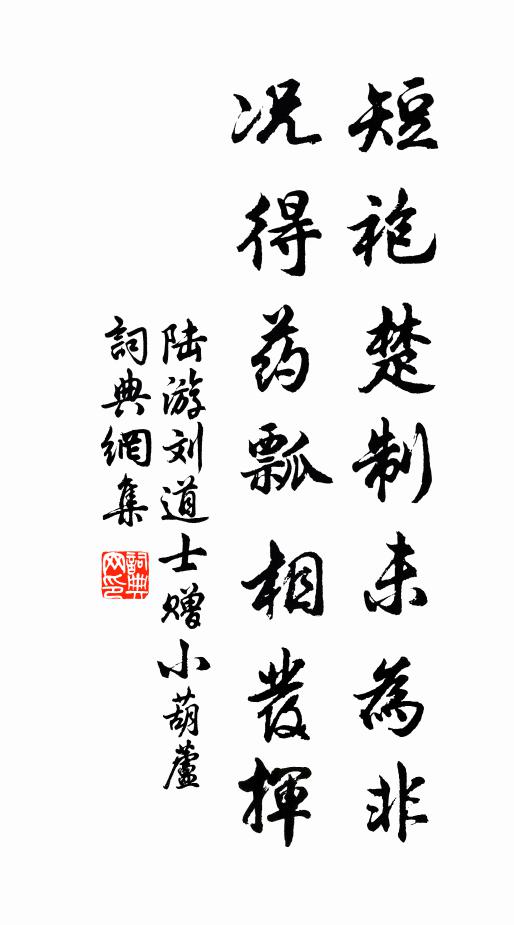 短袍楚制未為非
况得药瓢相發揮
陆游刘道士赠小葫蘆
詞典網集
詞典网印